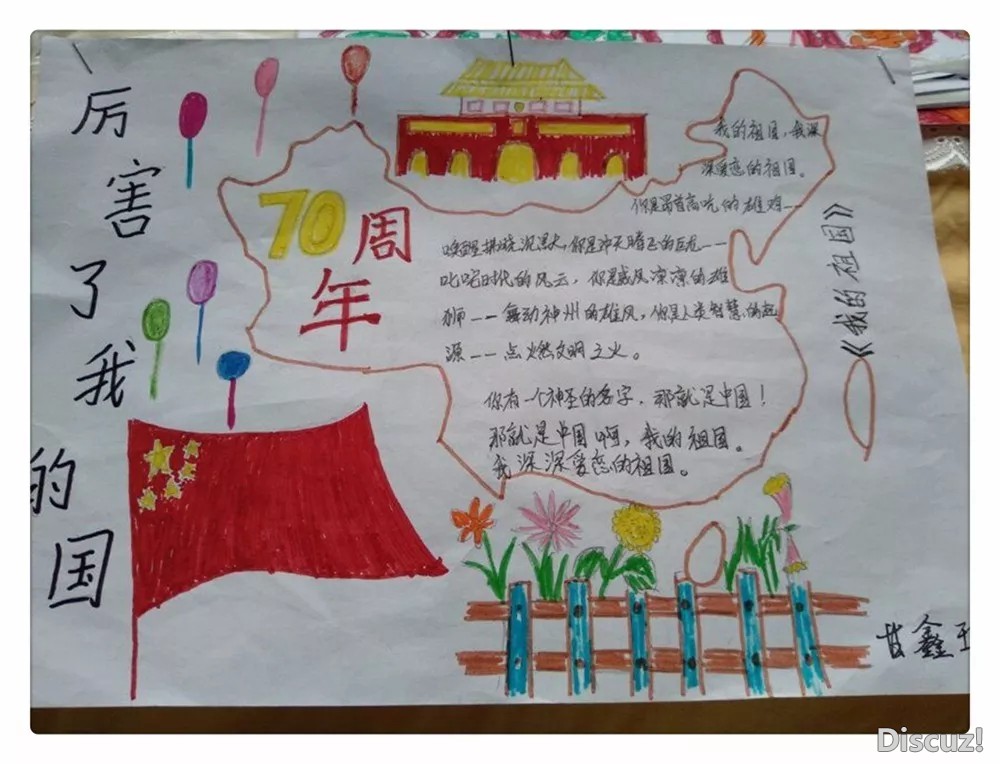 厉害了我的国
70周年
《我的祖国》
我的祖国,我深
深爱恋的祖国。
你是昂首高吭的雄鸡--
唤醒拂晓沉默,你是冲天腾飞的巨龙--
叱咤时代的风云,你是威风凛凛的雄
狮--舞动神州的雄风,你是人类智慧的起
源--点燃文明之火。
你有一个神圣的名字,那就是中国!
那就是中国啊,我的祖国。
我深深爱恋的祖国。
甘鑫玉
Discuz!